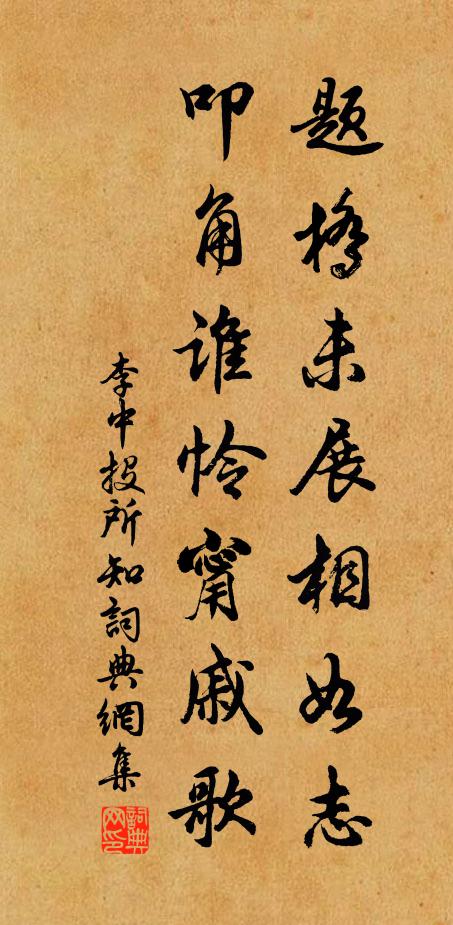 题桥未展相如志
叩角谁怜甯戚歌
李中投所知詞典網集
詞典網印